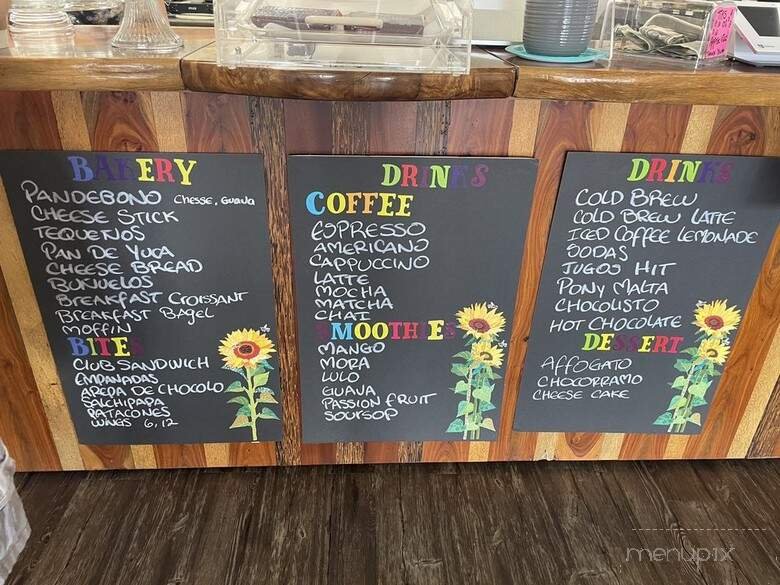 BAKERY
PANDEBONO CHESSE, GUAVA
CHEESE STICK
TEQUEÑOS
PAN DE YUCA
CHEESE BREAD
BUÑUELOS
BREAKFAST CROISSANT
BREAKFAST BAGEL
MOFFIN
BITE
CLUB SANDWICH
EMPANADAS
AREPA DE CHOCOLO
SALCHIPAPA
PATACONES
WINGS 6,12
DRINKS
COFFEE
ESPRESSO
AMERICANO
CAPPUCCINO
LATTE
MOCHA
MATCHA
CHAI
SMOOTHIES
MANGO
MORA
LULO
GUAVA
PASSION FRUIT
SOURSOP
DRINKS
COLD BREW
COLD BREW LATTE
ICED COFFEE LEMONADE
SODAS
JUGOS HIT
PONY MALTA
CHOCOLISTO
HOT CHOCOLATE
DESSERT
AFFOGATO
CHOCORRAMO
CHEESE CAKE
menupix